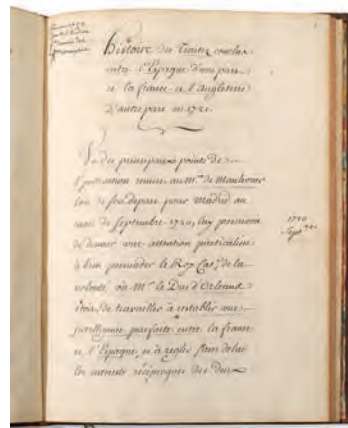 histoire des Traitez conclus
entre l'Espagne d'une part
et la france et l'angleterre
d'autre part en 1721.
1
Un des principaux points de
l'instruction remise au M.is de Maulevrier
lors de son depart pour Madrid au
mois de septembre 1720, luy prescrivoit
de donner une attention particuliere
à bien persuader le Roy Cat.e de la
volonté où M.r le Duc d'Orleans
étoit de travailler à retablir une
intelligence parfaite entre la france
et l'Espagne, et à regler
les interets réciproques des Deux
1720
Sept.re